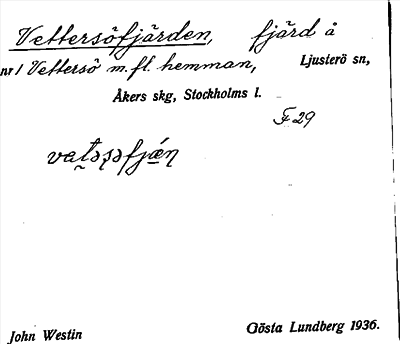 Vettersöfjärden, fjärd å
nr 1 Vettersö m.fl. hemman, Ljusterö sn,
Åkers skg, Stockholms l.
F 29
John Westin Gösta Lundberg 1936.